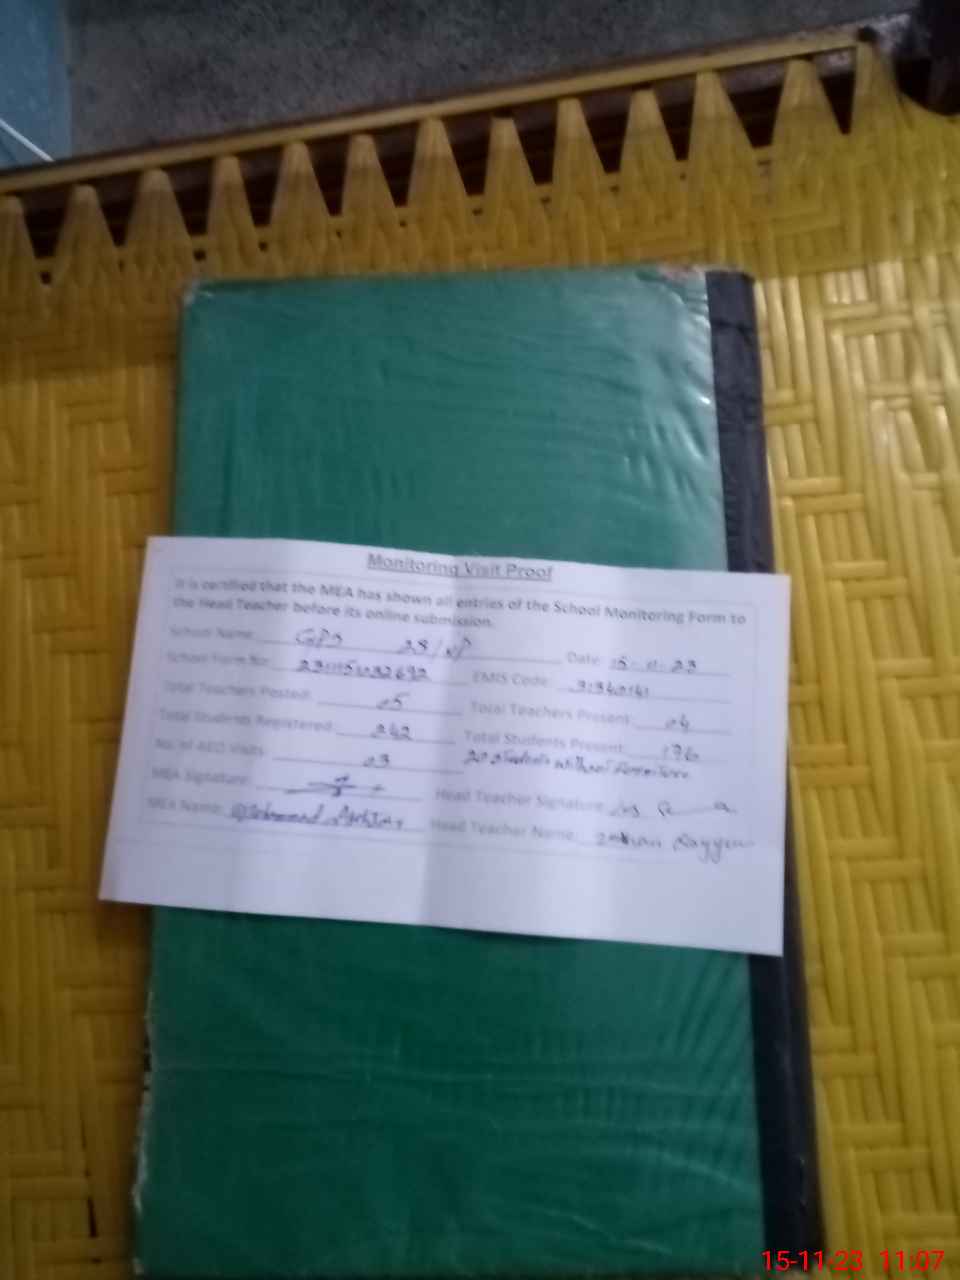 Monitoring Visit Proof
It is certified that the MEA has shown all entries of the School Monitoring Form to
the Head Teacher before its online submission.
School Name: GPS 28/NP Date: 15-11-23
School Form No: EMIS Code: 31340141
Total Teachers Posted: 05 Total Teachers Present: 04
Total Students Registered: 242 Total Students Present: 176
No. of AEO Visits: 03 20 students without furniture
MEA Signature: Head Teacher Signature:
MEA Name: Mohammad Head Teacher Name:
15-11-23 11:07